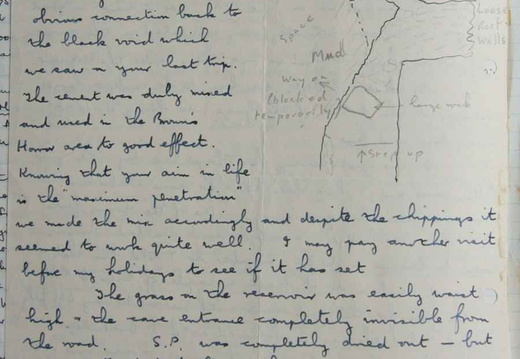 obvious connection back to
the black void which
we saw on your last trip.
The cement was duly mixed
and used in the
Horror area to good effect.
Knowing that your aim in life
is the "maximum penetration"
we made the mix accordingly and despite the chippings it
seemed to work quite well. I may pay another visit
before my holidays to see if it has set
The grass on the reservoir was easily waist
high & the cave entrance completely invisible from
the road. S.P. was completely dried out — but
Space
Mud
Way on
(blocked
temporarily)
Large rock
↑ Step up
Loose
Rock
Walls